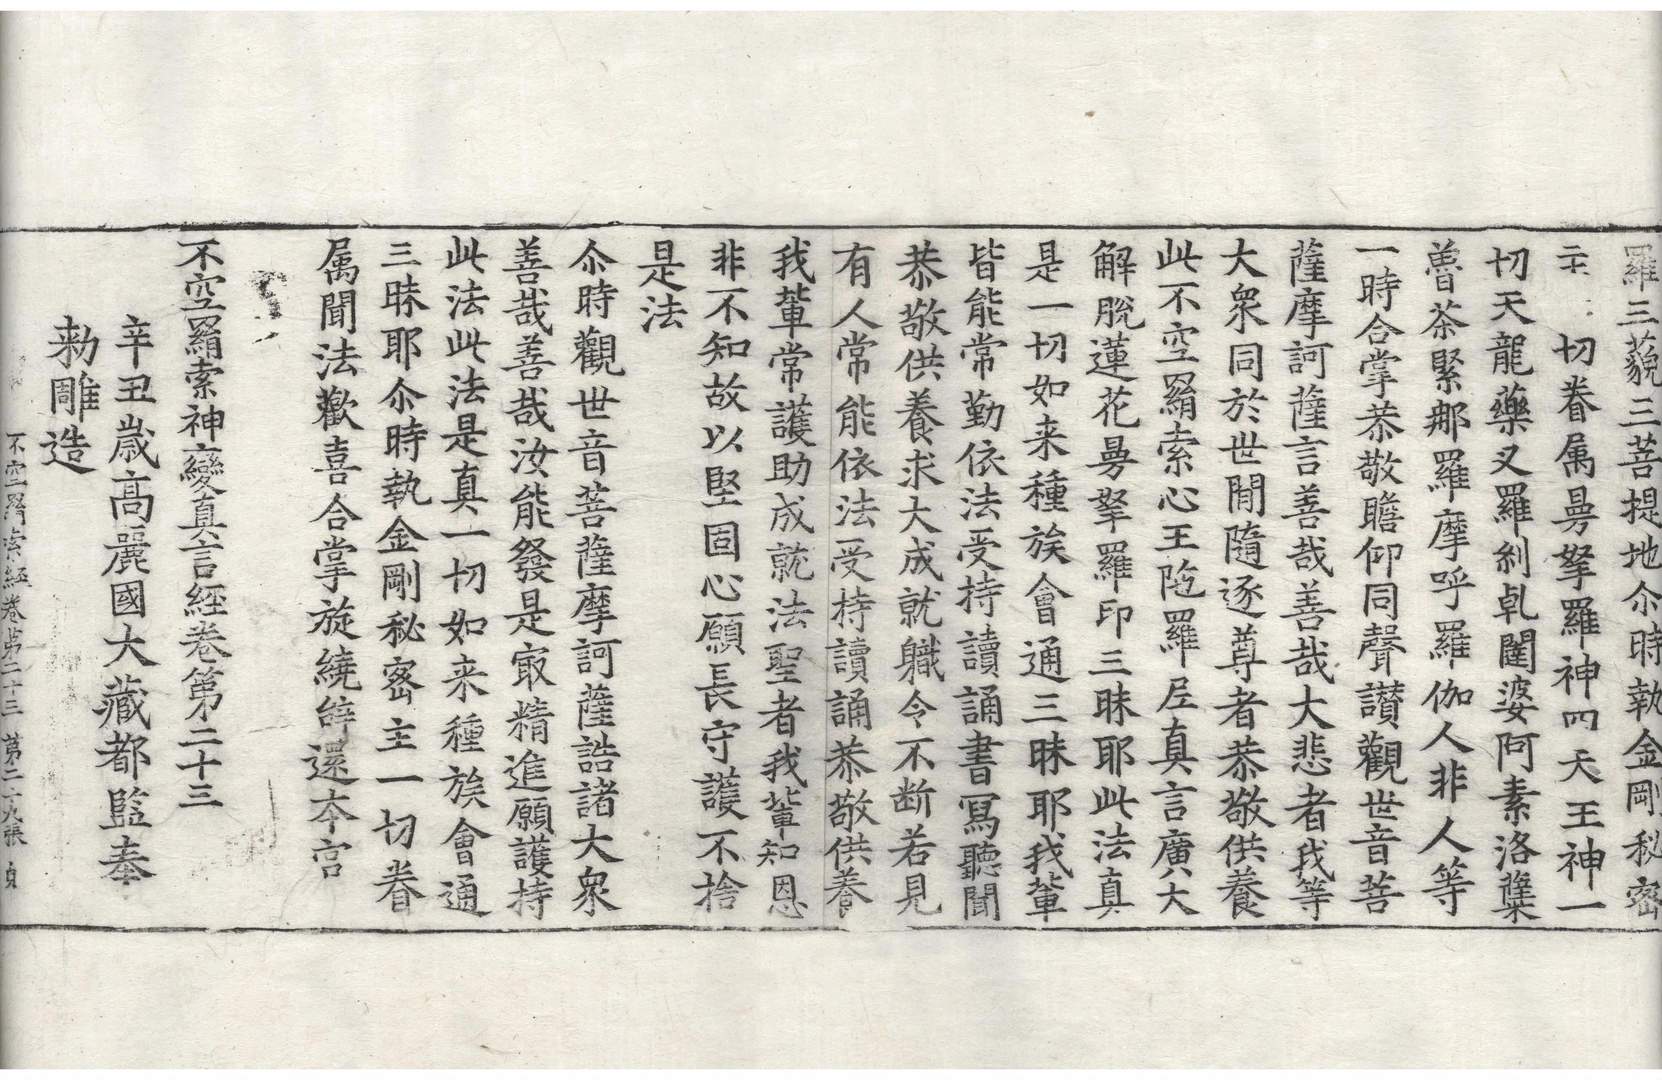 羅三藐三菩提地尒時執金剛秘密
主一切眷属曼拏羅神四天王神一
切天龍藥叉羅剎乹闥婆阿素洛蘖
嚕茶緊那羅摩呼羅伽人非人等
一時合掌恭敬瞻仰同聲讃觀世音菩
薩摩訶薩言善哉善哉大悲者我等
大衆同於世閒隨逐尊者恭敬供養
此不空羂索心王陁羅尼真言廣大
解脫蓮花曼拏羅印三昧耶此法真
是一切如来種族會通三昧耶我輩
皆能常勤依法受持讀誦書寫聽聞
恭敬供養求大成就軄令不断若見
有人常能依法受持讀誦恭敬供養
我輩常護助成就法聖者我輩知恩
非不知故以堅固心願長守護不捨
是法
尒時觀世音菩薩摩訶薩誥諸大衆
善哉善哉汝能發是㝡精進願護持
此法此法是真一切如来種族會通
三昧耶尒時執金剛秘密主一切眷
属聞法歡喜合掌旋繞辝還本宫
不空羂索神變真言經卷第二十三
辛丑歲高麗國大藏都監奉
勑雕造
不空羂索經卷第二十三 第二十九張 貞